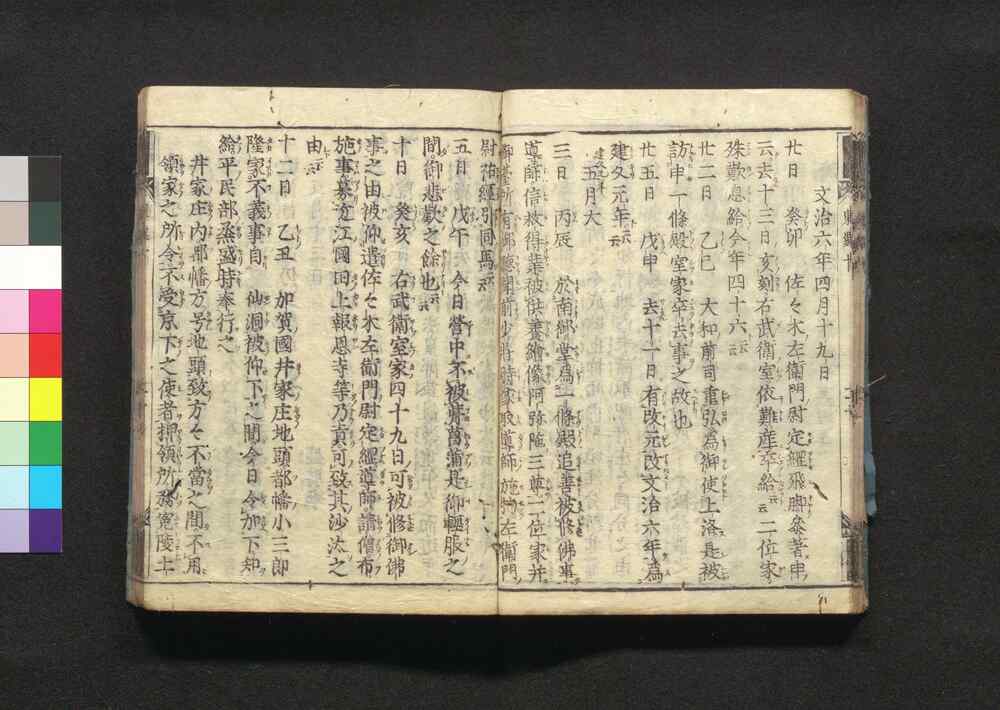 文治六年四月十九日
廿日 癸卯 佐々木左衛門尉定綱飛脚參著申
云去十三日亥刻右武衛室依難産卒給云云二位家
殊歎息給今年四十六云云
廿二日 乙巳 大和前司重弘為御使上洛是被
訪申一條殿室家卒去事之故也
廿五日 戊申 去十一日有改元改文治六年為
建久元年云云
五月大
三日 丙辰 於南御堂為一條殿追善被修佛事
導師信救得業被供養繪像阿弥陁三尊二位家并
御臺所有御聽聞前少将時家取導師施物左衛門
尉祐經引同馬云云
五日 戊午 今日營中不被葺菖蒲是御輕服之
間御悲歎之餘也云云
十日 癸亥 右武衛室家四十九日可被修御佛
事之由被仰遣佐々木左衛門尉定綱導師請僧布
施事募近江國田上報恩寺等乃貢可致其沙汰之
由云云
十二日 乙丑 加賀國井家庄地頭都幡小三郎
隆家不義事自 仙洞被仰下之間今日令加下知
給平民部丞盛時奉行之
井家庄内都幡方号地頭致方々不當之間不用
領家之所令不受京下之使者押領所務寃陵土